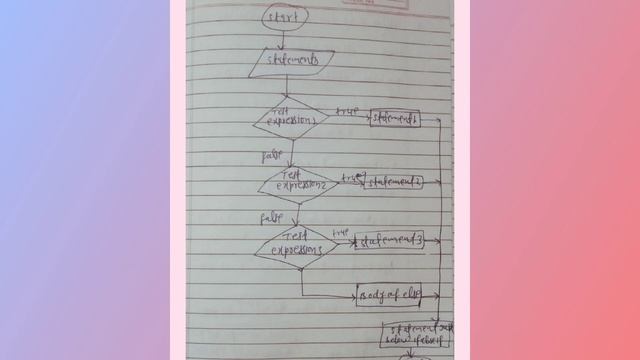 start
statements
Test
expression1
true
statement1
false
Test
expression2
true
statement2
false
Test
expression3
true
statement3
Body of else
statement just
below if elseif